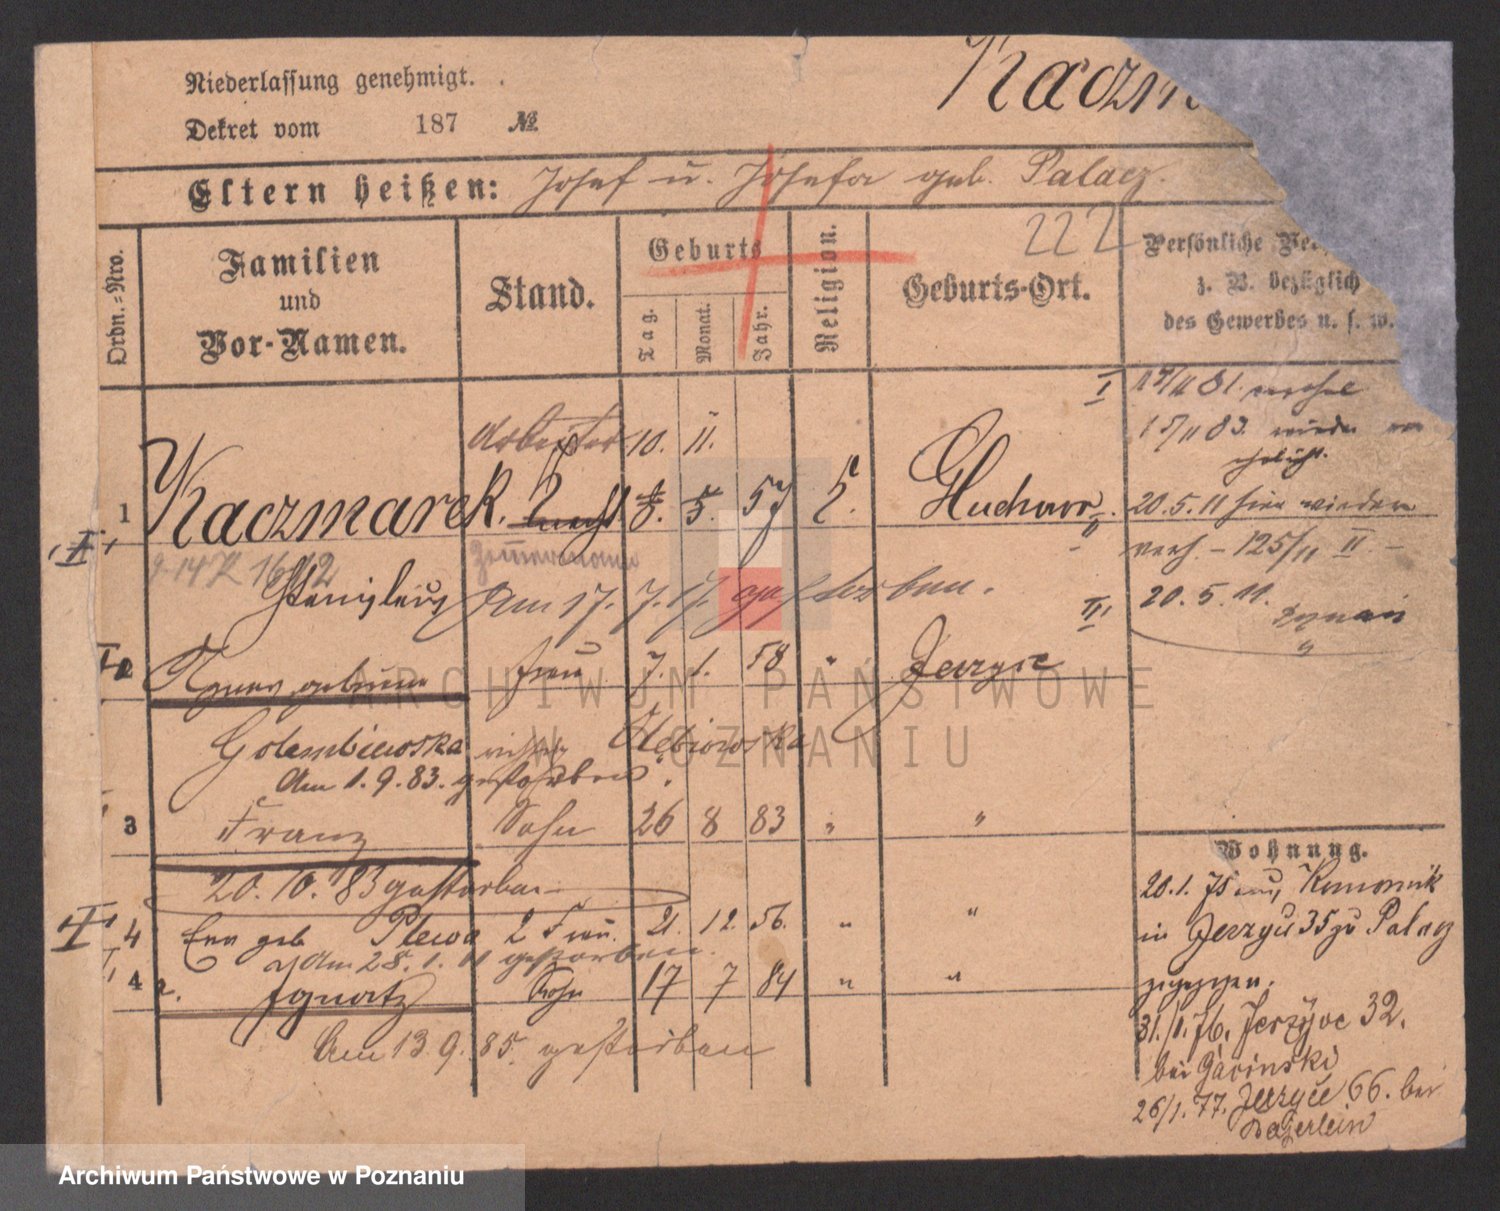 Niederlassung genehmigt.
Dekret vom 187 №
Kaczm
Eltern heißen: Josef u. Josefa geb. Palacz.
222
Ordn.-Nro.
Familien
und
Vor-Namen.
Stand.
Geburts
Tag.
Monat.
Jahr.
Religion.
Geburts-Ort.
Persönliche Ver
z. B. bezüglich
des Gewerbes u. s. w.
Arbeiter 10. 11.
1 Kaczmarek. Knecht 8. 5. 57 Gluchowo.
II
Stanislaus
Am 17. 7. 17. gestorben.
2 Agnes geborene Frau 7. 1. 58 " Jerzyce
Golembiewska richtig
Am 1. 9. 83. gestorben.
3 Franz Sohn 26 8 83 " "
20. 10. 83 gestorben
II 4 Eva geb Plewa 2 Frau. 21. 12. 56. " "
Am 28. 1. 11 gestorben.
4 a. Ignatz Sohn 17 7 84 " "
Am 13 9. 85. gestorben
I
81.
83. wieder
20. 5. 11 hier wieder
125/11 II
III 20. 5. 11.
Wohnung.
20. 1. 75 aus
in Jerzyce 35 zu Palacz
zugezogen.
31/1. 76. Jerzyce 32.
bei
26/1. 77. Jerzyce 66. bei
Bajerlein
ARCHIWUM PAŃSTWOWE
W POZNANIU
Archiwum Państwowe w Poznaniu